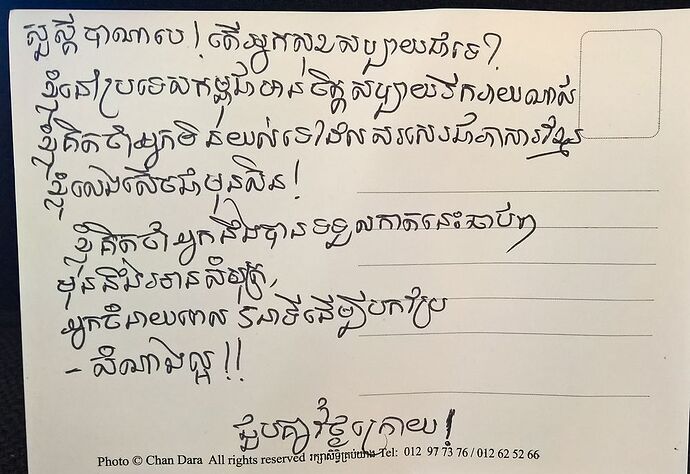 សួស្តីបាណាបេ! តើអ្នកសុខសប្បាយជាទេ?
ខ្ញុំនៅប្រទេសកម្ពុជាមានចិត្តសប្បាយរីករាយណាស់
ខ្ញុំគិតថាអ្នកមិនយល់ទេដែលសរសេរជាភាសារខ្មែរ
ខ្ញុំលេងសើចជាមុនសិន!
ខ្ញុំគិតថាអ្នកនឹងបានទទួលកាតនេះឆាប់ៗ
មុននឹង
អ្នកចំនាយពេល ៥នាទីដើម្បីបកប្រែ
- សំណាងល្អ!!
ជួបគ្នាថ្ងៃក្រោយ!
Photo © Chan Dara All rights reserved រក្សាសិទ្ធិគ្រប់យ៉ាង Tel: 012 97 73 76 / 012 62 52 66